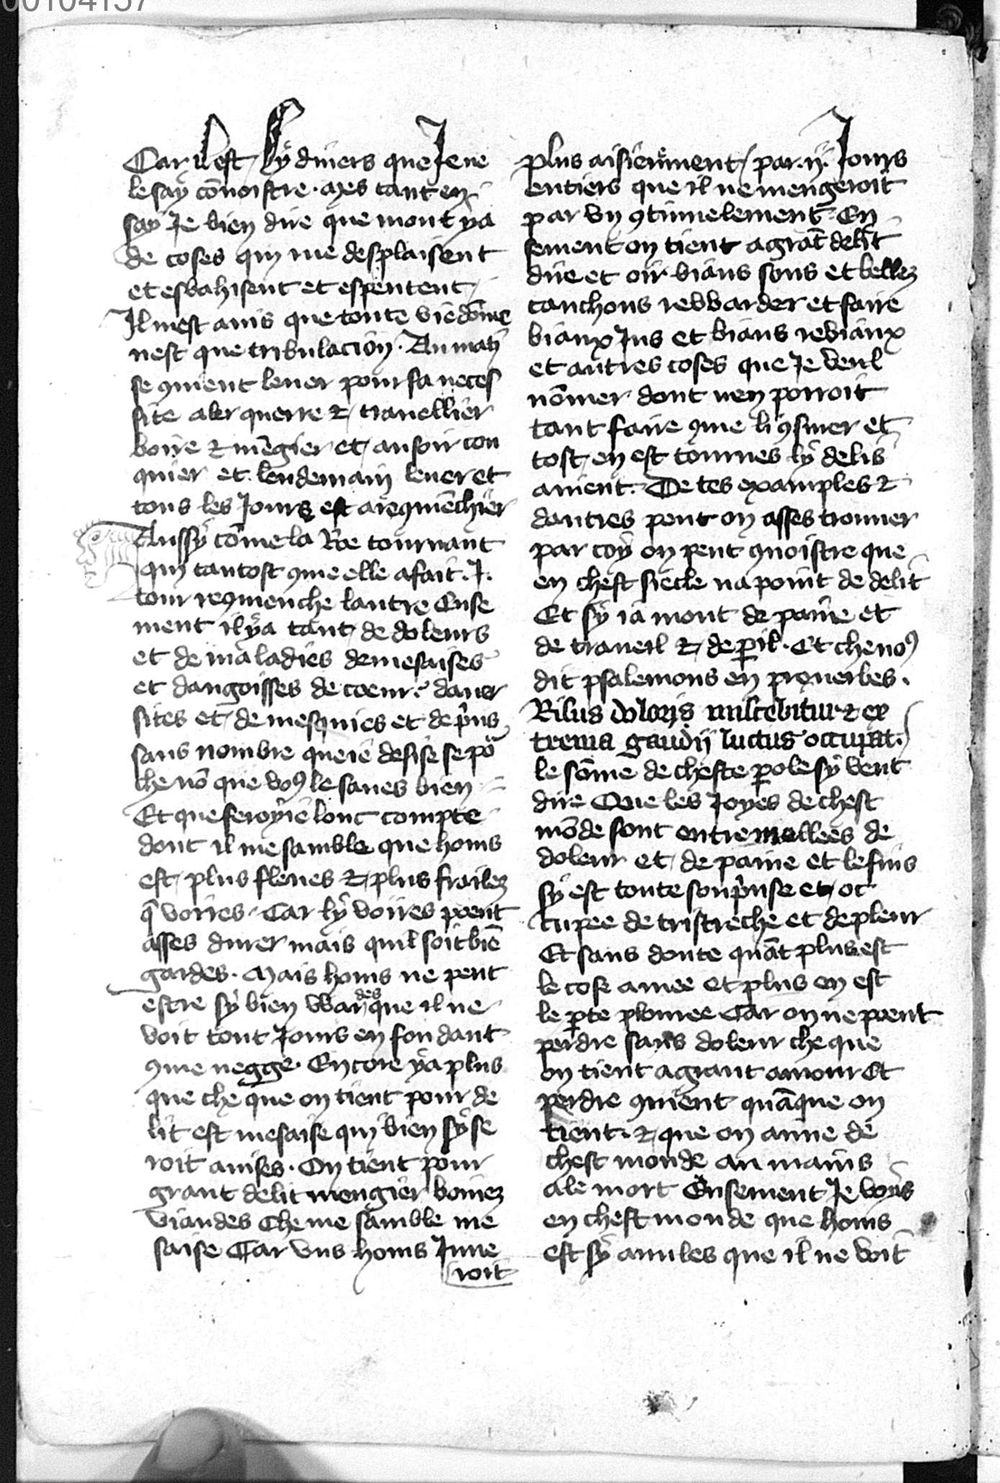 00104157
Car il est sy diuers que Je ne
le say cōnoistre. mes tant en
say Je bien dire que mont ya
de coses qui me desplaisent
et esbahisent et espentent
Il mest auis que toute vie dōme
nest que tribulacion. Au mati
se ꝯuient leuer pour sa neces
site aler querre ⁊ trauellier
boire ⁊ mēgier et au soir cou
quier et lendemain leuer et
tous les Jours est a reꝯmēchier
Aussy cōme la Roe tournant
qui tantost ꝯme elle a fait .J.
tour reꝯmenche lautre Ense
ment il ya tant de doleurs
et de maladies de mesaises
et dangoisses de coeur. dauer
sites et de mesquies et de pⁱns
sans nombre que ie desise se po
che nō que voꝰ le saues bien
Et que feroy ie lonc compte
dont il me samble que homs
est plus fleues ⁊ plus frailez
q̄ voires. Car ly voires poent
asses durer mais quil soit biē
gardes. Mais homs ne peut
estre sy bien wardes que il ne
voit tout Jours en fondant
ꝯme negge. Encore ya plus
que che que on tient pour de
lit est mesaise qui bien sy se
roit auises. On tient pour
grant delit mengier bonnez
viandes Che me samble me
saise Car vns homs June
roit
plus aisieument par .ij. Jours
entiers que il ne mengeroit
par vn ꝯtinuelement. En
sement on tient a grāt delit
dire et oir bians sons et bellez
canchons rewarder et faire
biaux Jus et bians rebiaux
et autres coses que Je veul
nōmer dont nen porroit
tant faire ꝯme li ꝯsiuer et
tost en est tournes ly delis
anient. De tes examples ⁊
dautres peut on asses trouuer
par coy on peut ꝯnoistre que
en chest siecle na point de delit
Et sy ia mont de paine et
de traueil ⁊ de p̲il. Et che noꝰ
dit psalemons en prouerbes.
Risus doloris miscebitur ⁊ ex
trema gaudij luctus occupat.
le sōme de cheste p̲ole sy veut
dire Que les Joyes de chest
mōde sont entremellees de
doleur et de paine et le fins
sy est toute souprⁱnse et oc
cupee de tristreche et de pleur
Et sans doute quāt plus est
le cose amee et plus en est
le p̲te plouree Car on ne poent
perdre sans doleur che que
on tient a grant amour Et
perdre ꝯuient quāque on
tient. ⁊ que on aime de
chest monde au mains
a le mort Ensement Je vous
en chest monde que homs
est sy auules que il ne voit